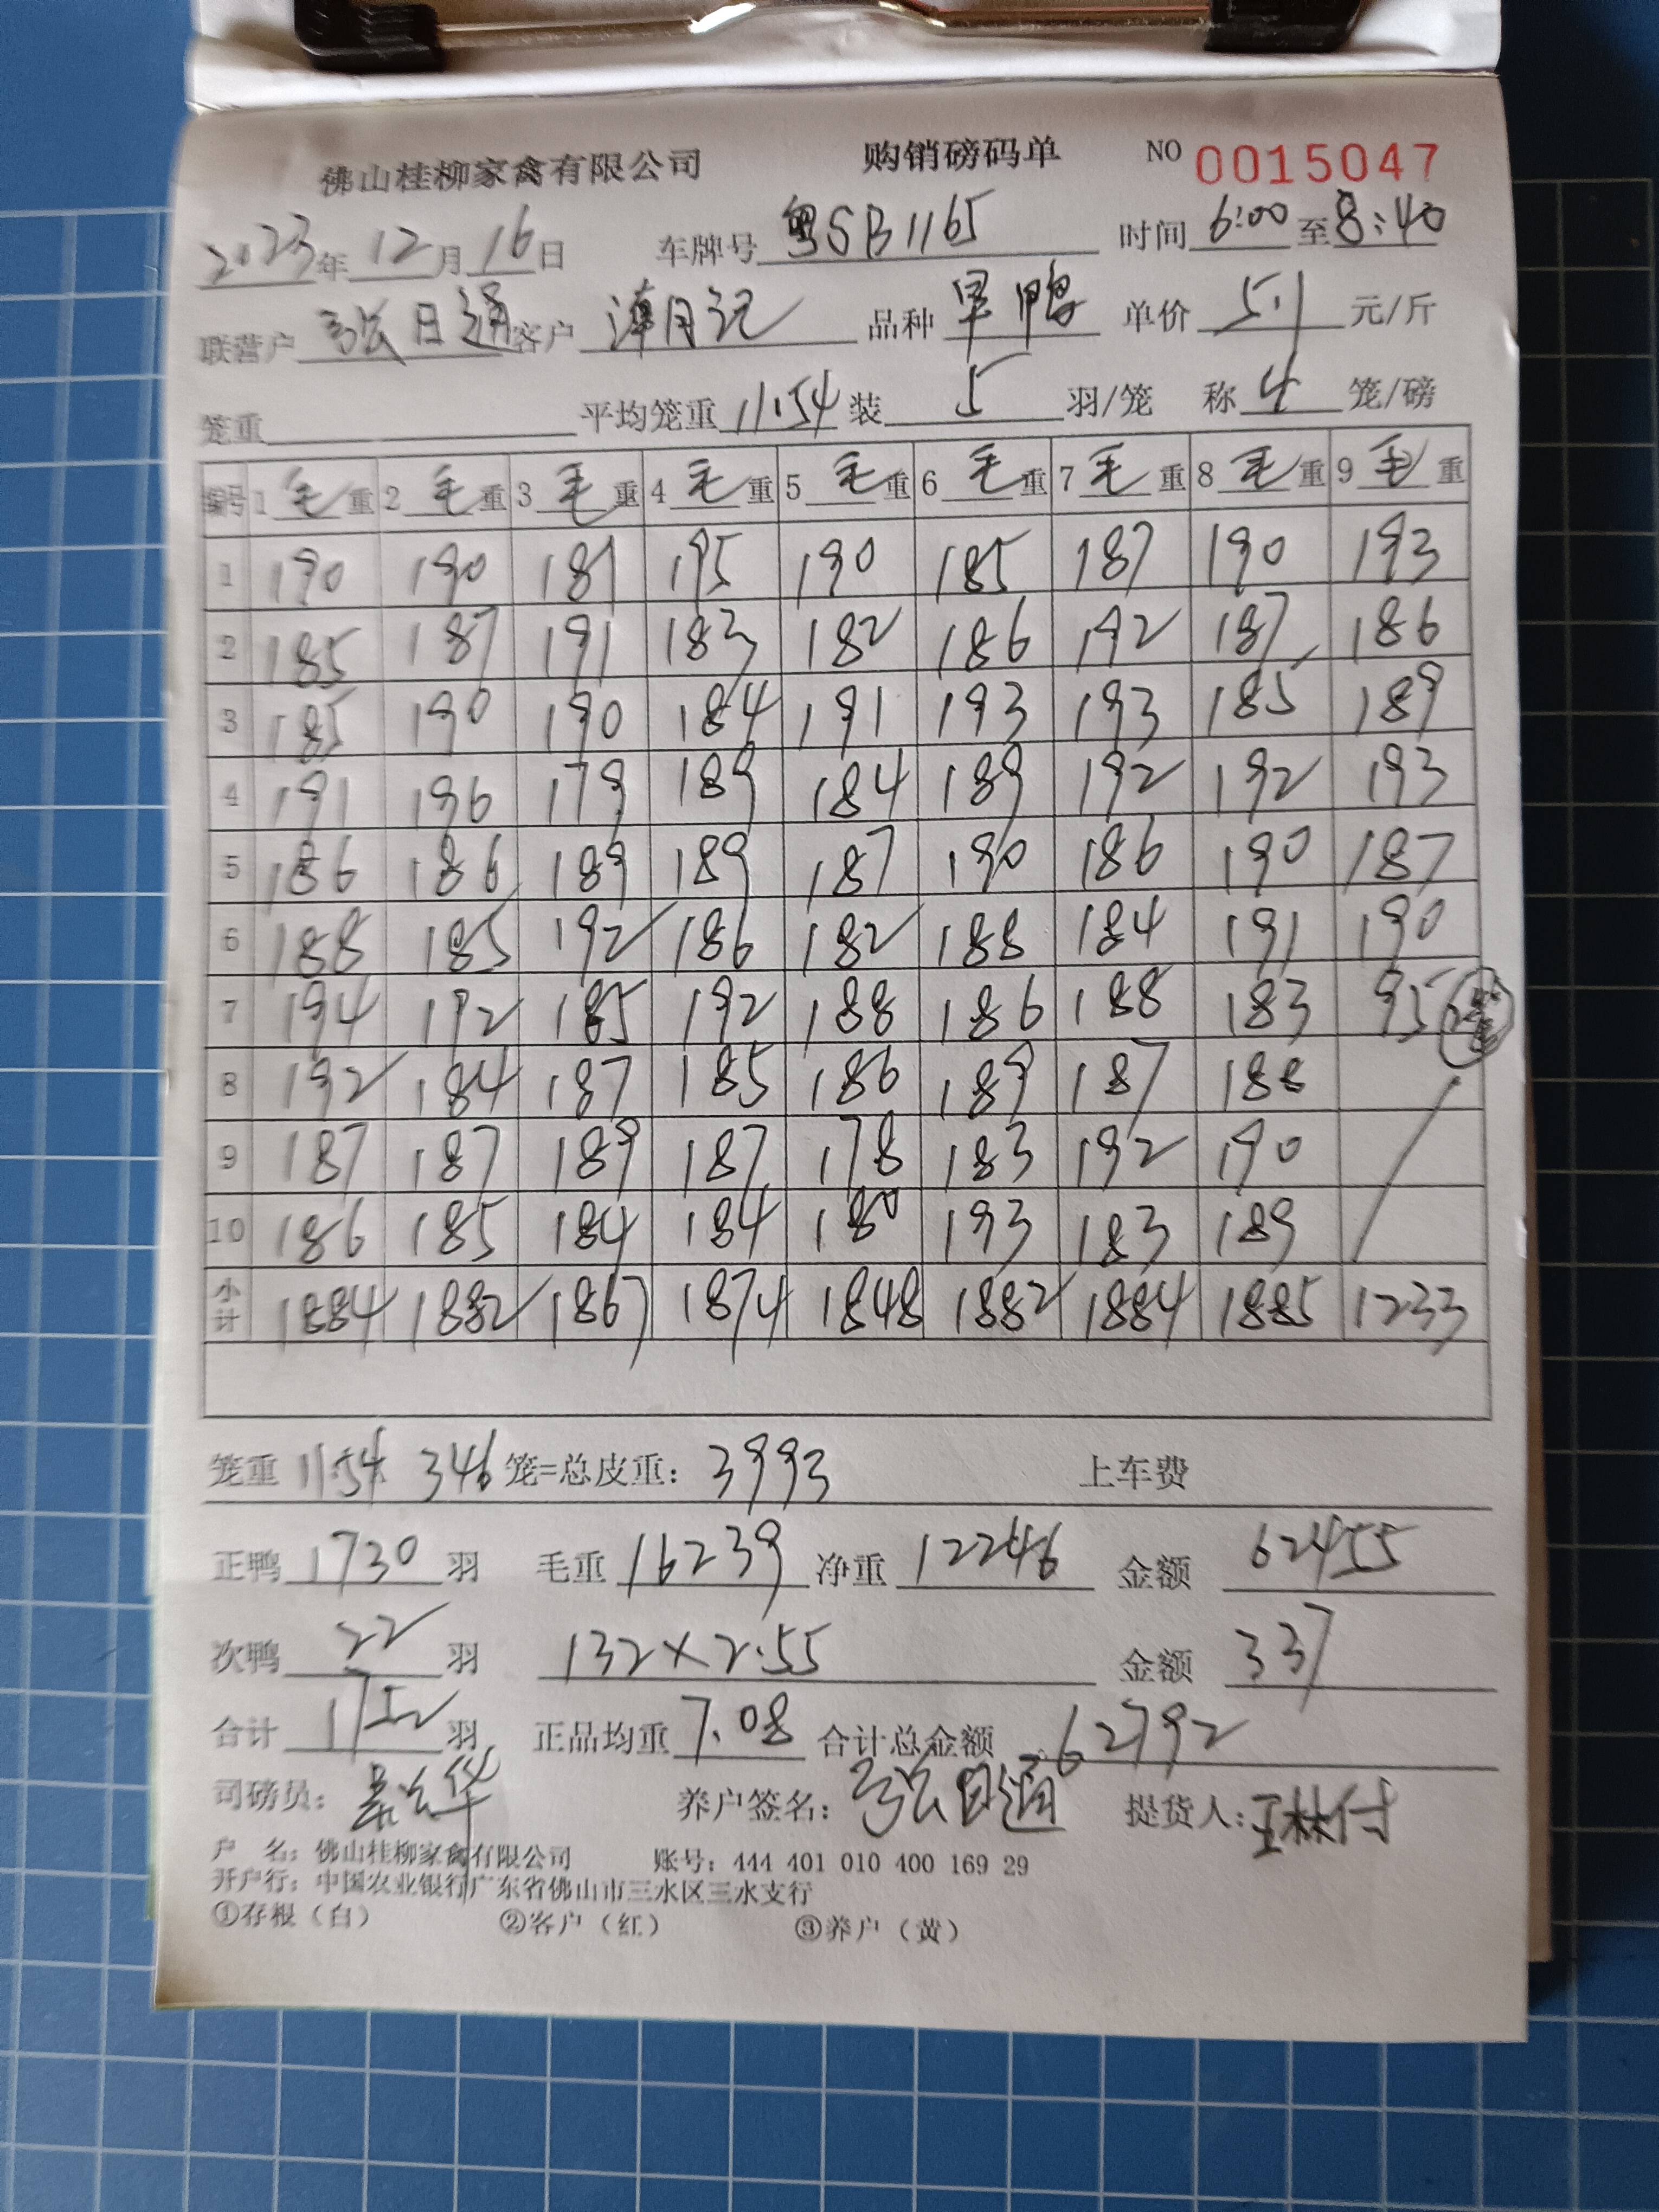 佛山桂柳家禽有限公司 购销磅码单 NO 0015047
2023年12月16日 车牌号 粤SB1165 时间 6:00 至 8:40
联营户 张日通 客户 潭月记 品种 旱鸭 单价 5.1 元/斤
笼重 平均笼重 11.54 装 5 羽/笼 称 4 笼/磅
编号 1 毛重 2 毛重 3 毛重 4 毛重 5 毛重 6 毛重 7 毛重 8 毛重 9 毛重
1 190 190 181 195 190 185 187 190 193
2 185 187 191 183 182 186 192 187 186
3 185 190 190 184 191 193 193 185 189
4 191 196 179 189 184 189 192 192 193
5 186 186 189 189 187 190 186 190 187
6 188 185 192 186 182 188 184 191 190
7 194 192 185 192 188 186 188 183 95
8 192 184 187 185 186 189 187 188
9 187 187 189 187 178 183 192 190
10 186 185 184 184 180 193 183 189
小计 1884 1882 1867 1874 1848 1882 1884 1885 1233
笼重 11.54 346 笼=总皮重: 3993 上车费
正鸭 1730 羽 毛重 16239 净重 12246 金额 62455
次鸭 22 羽 132×2.55 金额 337
合计 1752 羽 正品均重 7.08 合计总金额 62792
司磅员: 养户签名: 张日通 提货人: 王林付
户 名: 佛山桂柳家禽有限公司 账号: 444 401 010 400 169 29
开户行: 中国农业银行广东省佛山市三水区三水支行
①存根（白） ②客户（红） ③养户（黄）